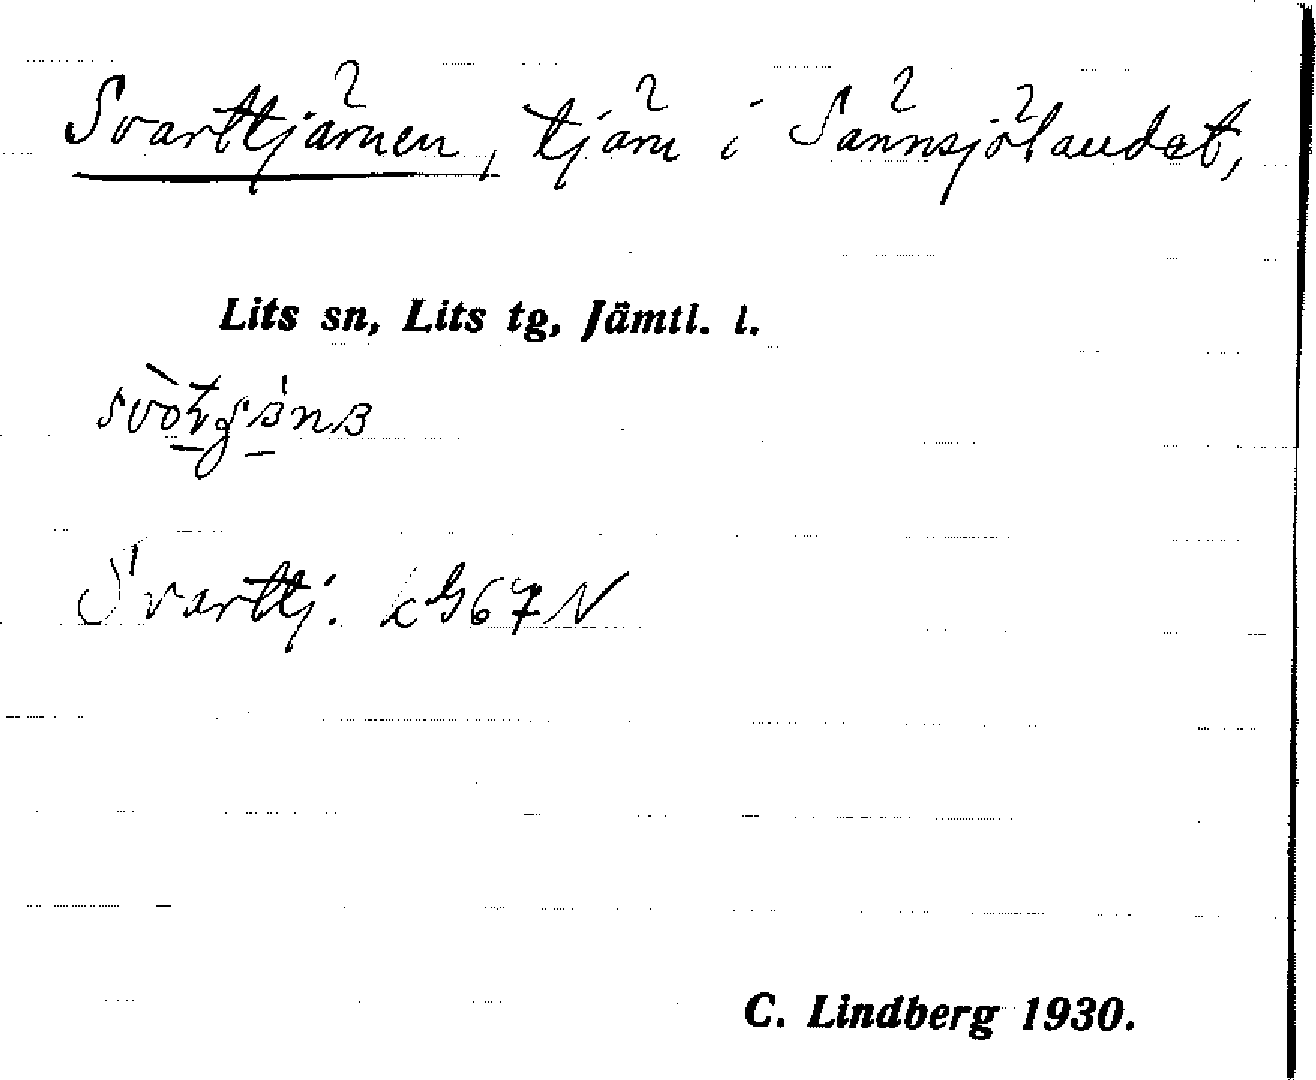 Svarttjärnen, tjärn i Sännsjölandet,
Lits sn, Lits tg, Jämtl. l.
Svarttj. kG67N
C. Lindberg 1930.